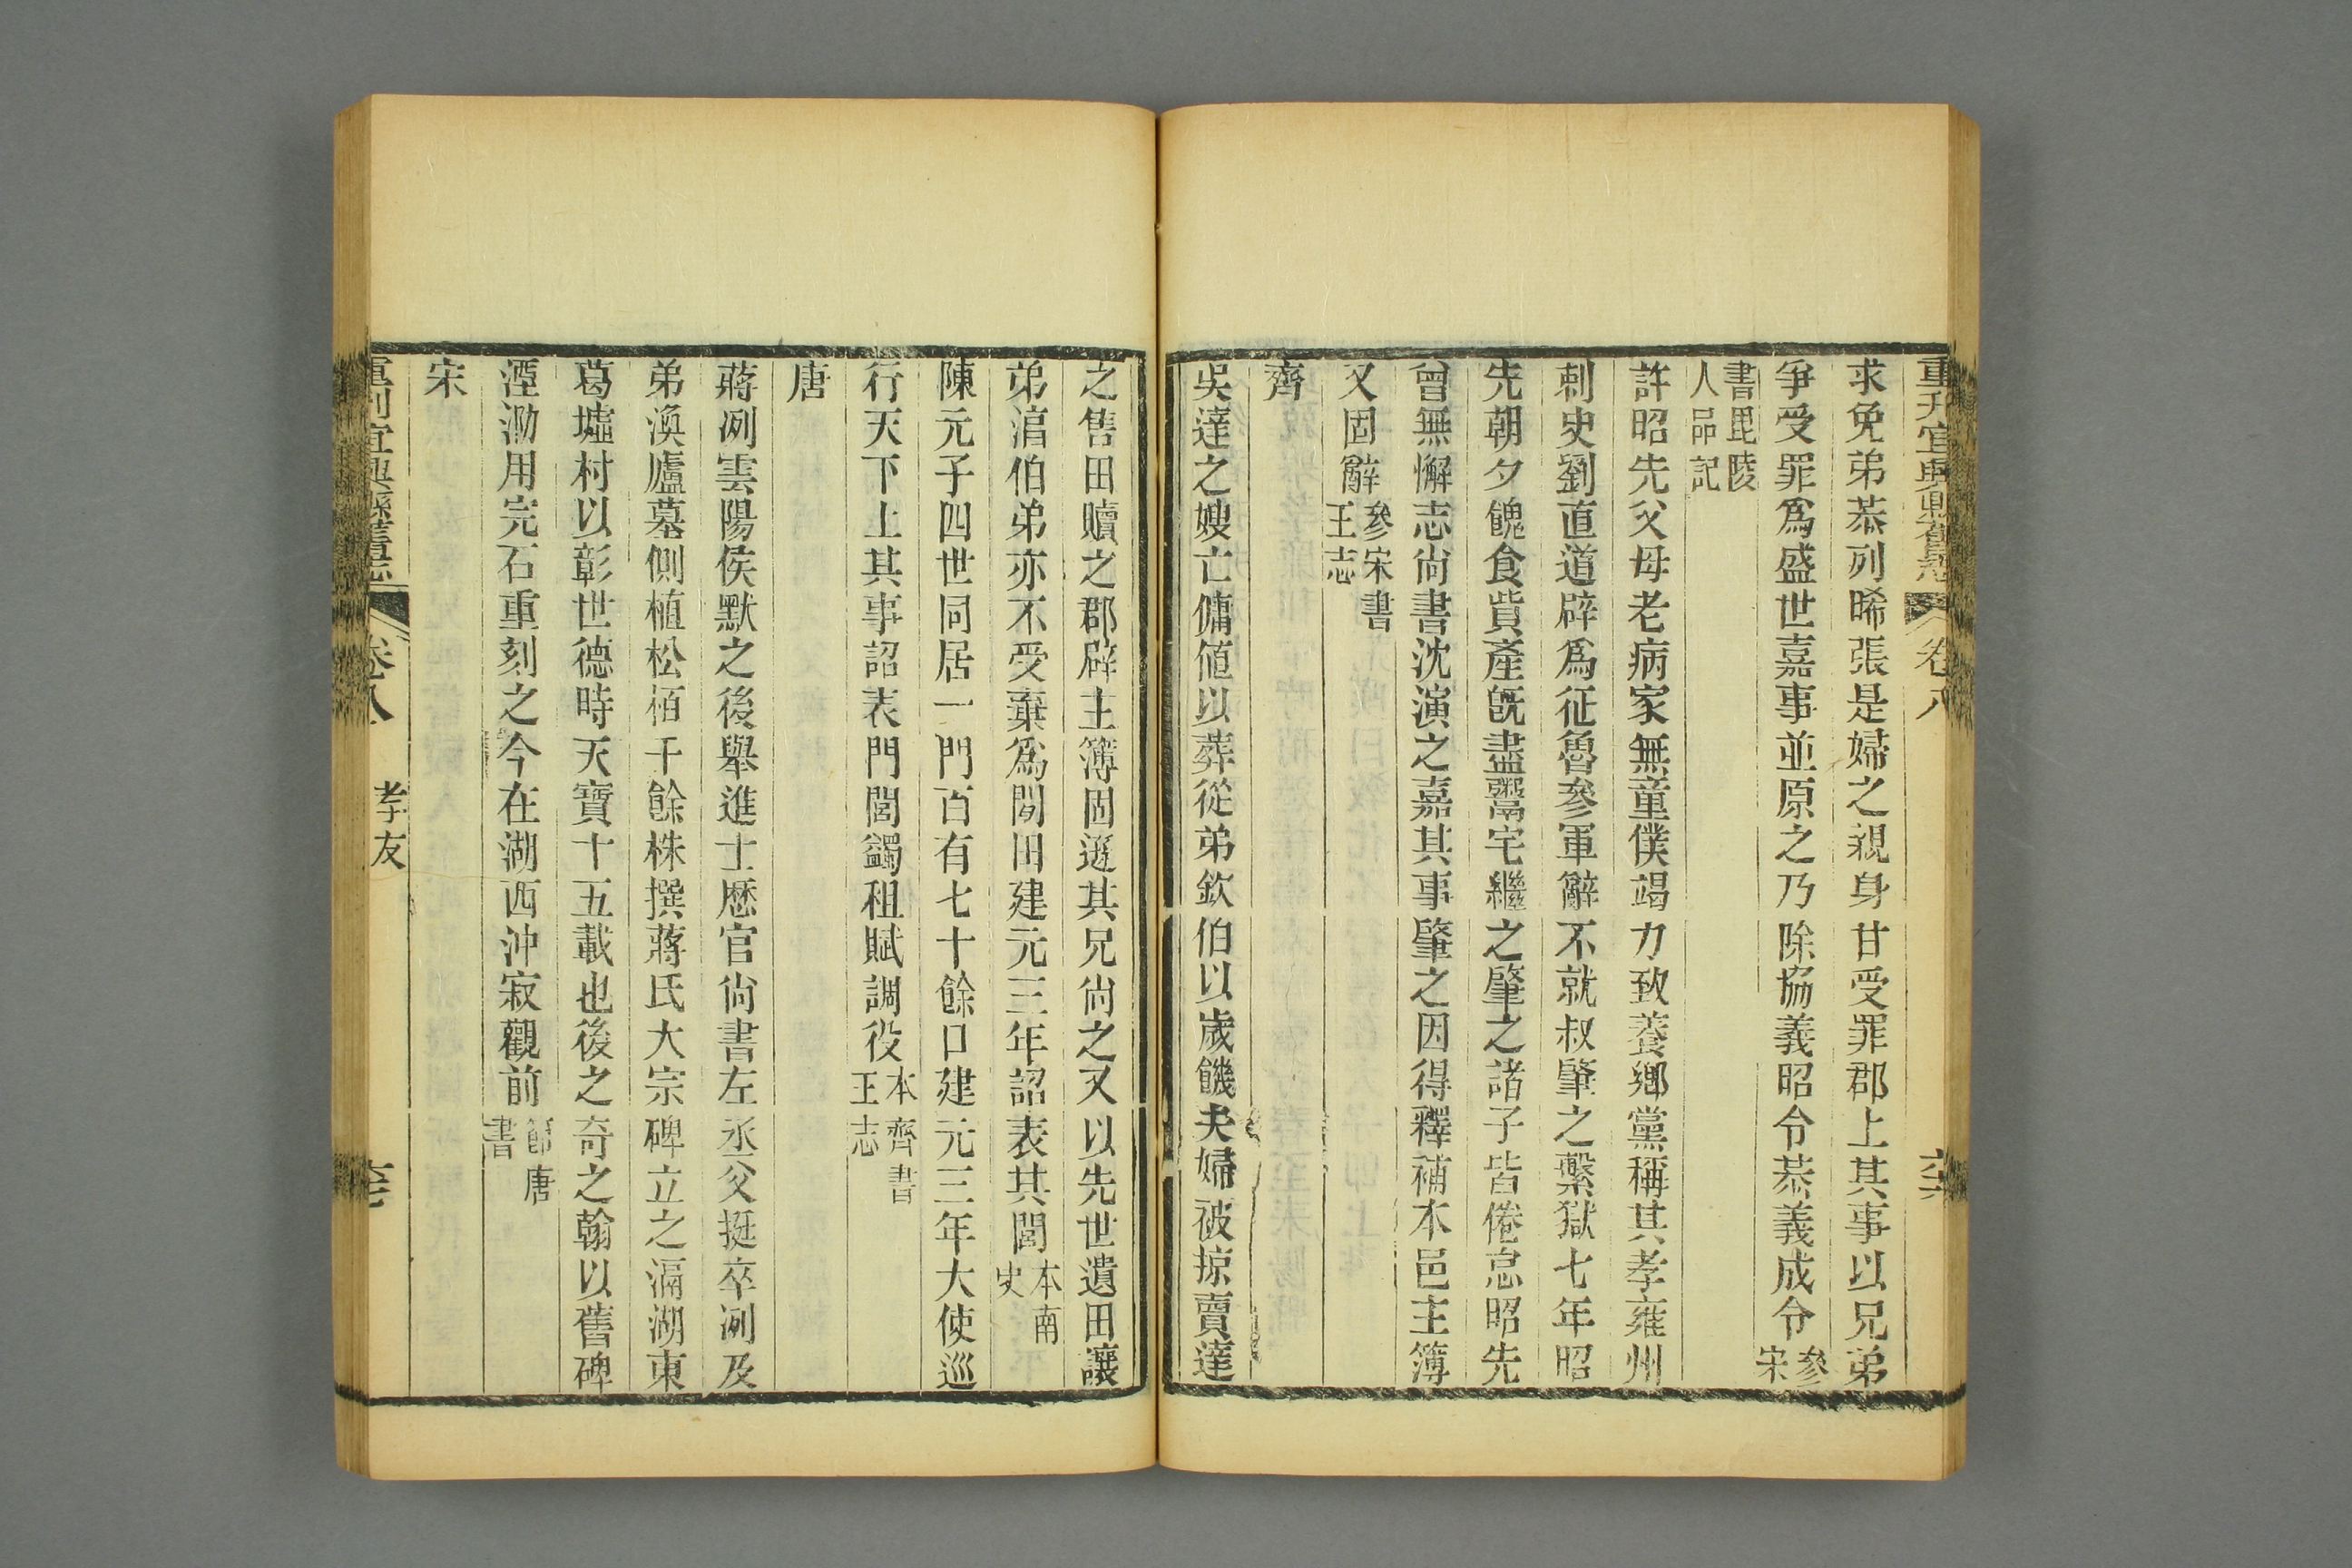 重刋宜興縣舊志 卷八
求免弟恭列晞張是婦之親身甘受罪郡上其事以兄弟
爭受罪爲盛世嘉事並原之乃除協義昭令恭義成令參宋
書毘陵
人品記
許昭先父母老病家無童僕竭力致養鄉黨稱其孝雍州
刺史劉直道辟爲征魯參軍辭不就叔肇之繫獄七年昭
先朝夕餽食貲產旣盡鬻宅繼之肇之諸子皆倦怠昭先
曾無懈志尙書沈演之嘉其事肇之因得釋補本邑主簿
又固辭參宋書
王志
齊
吳達之嫂亡傭値以葬從弟欽伯以歲饑夫婦被掠賣達
之售田贖之郡辟主簿固遜其兄尙之又以先世遺田讓
弟涫伯弟亦不受棄爲閒田建元三年詔表其閭本南
史
陳元子四世同居一門百有七十餘口建元三年大使巡
行天下上其事詔表門閭蠲租賦調役本齊書
王志
唐
蔣洌雲陽侯默之後舉進士歷官尙書左丞父挺卒洌及
弟渙廬墓側植松栢千餘株撰蔣氏大宗碑立之滆湖東
葛墟村以彰世德時天寶十五載也後之奇之翰以舊碑
湮泐用完石重刻之今在湖西沖寂觀前節唐
書
宋
重刋宜興縣舊志 卷八 孝友